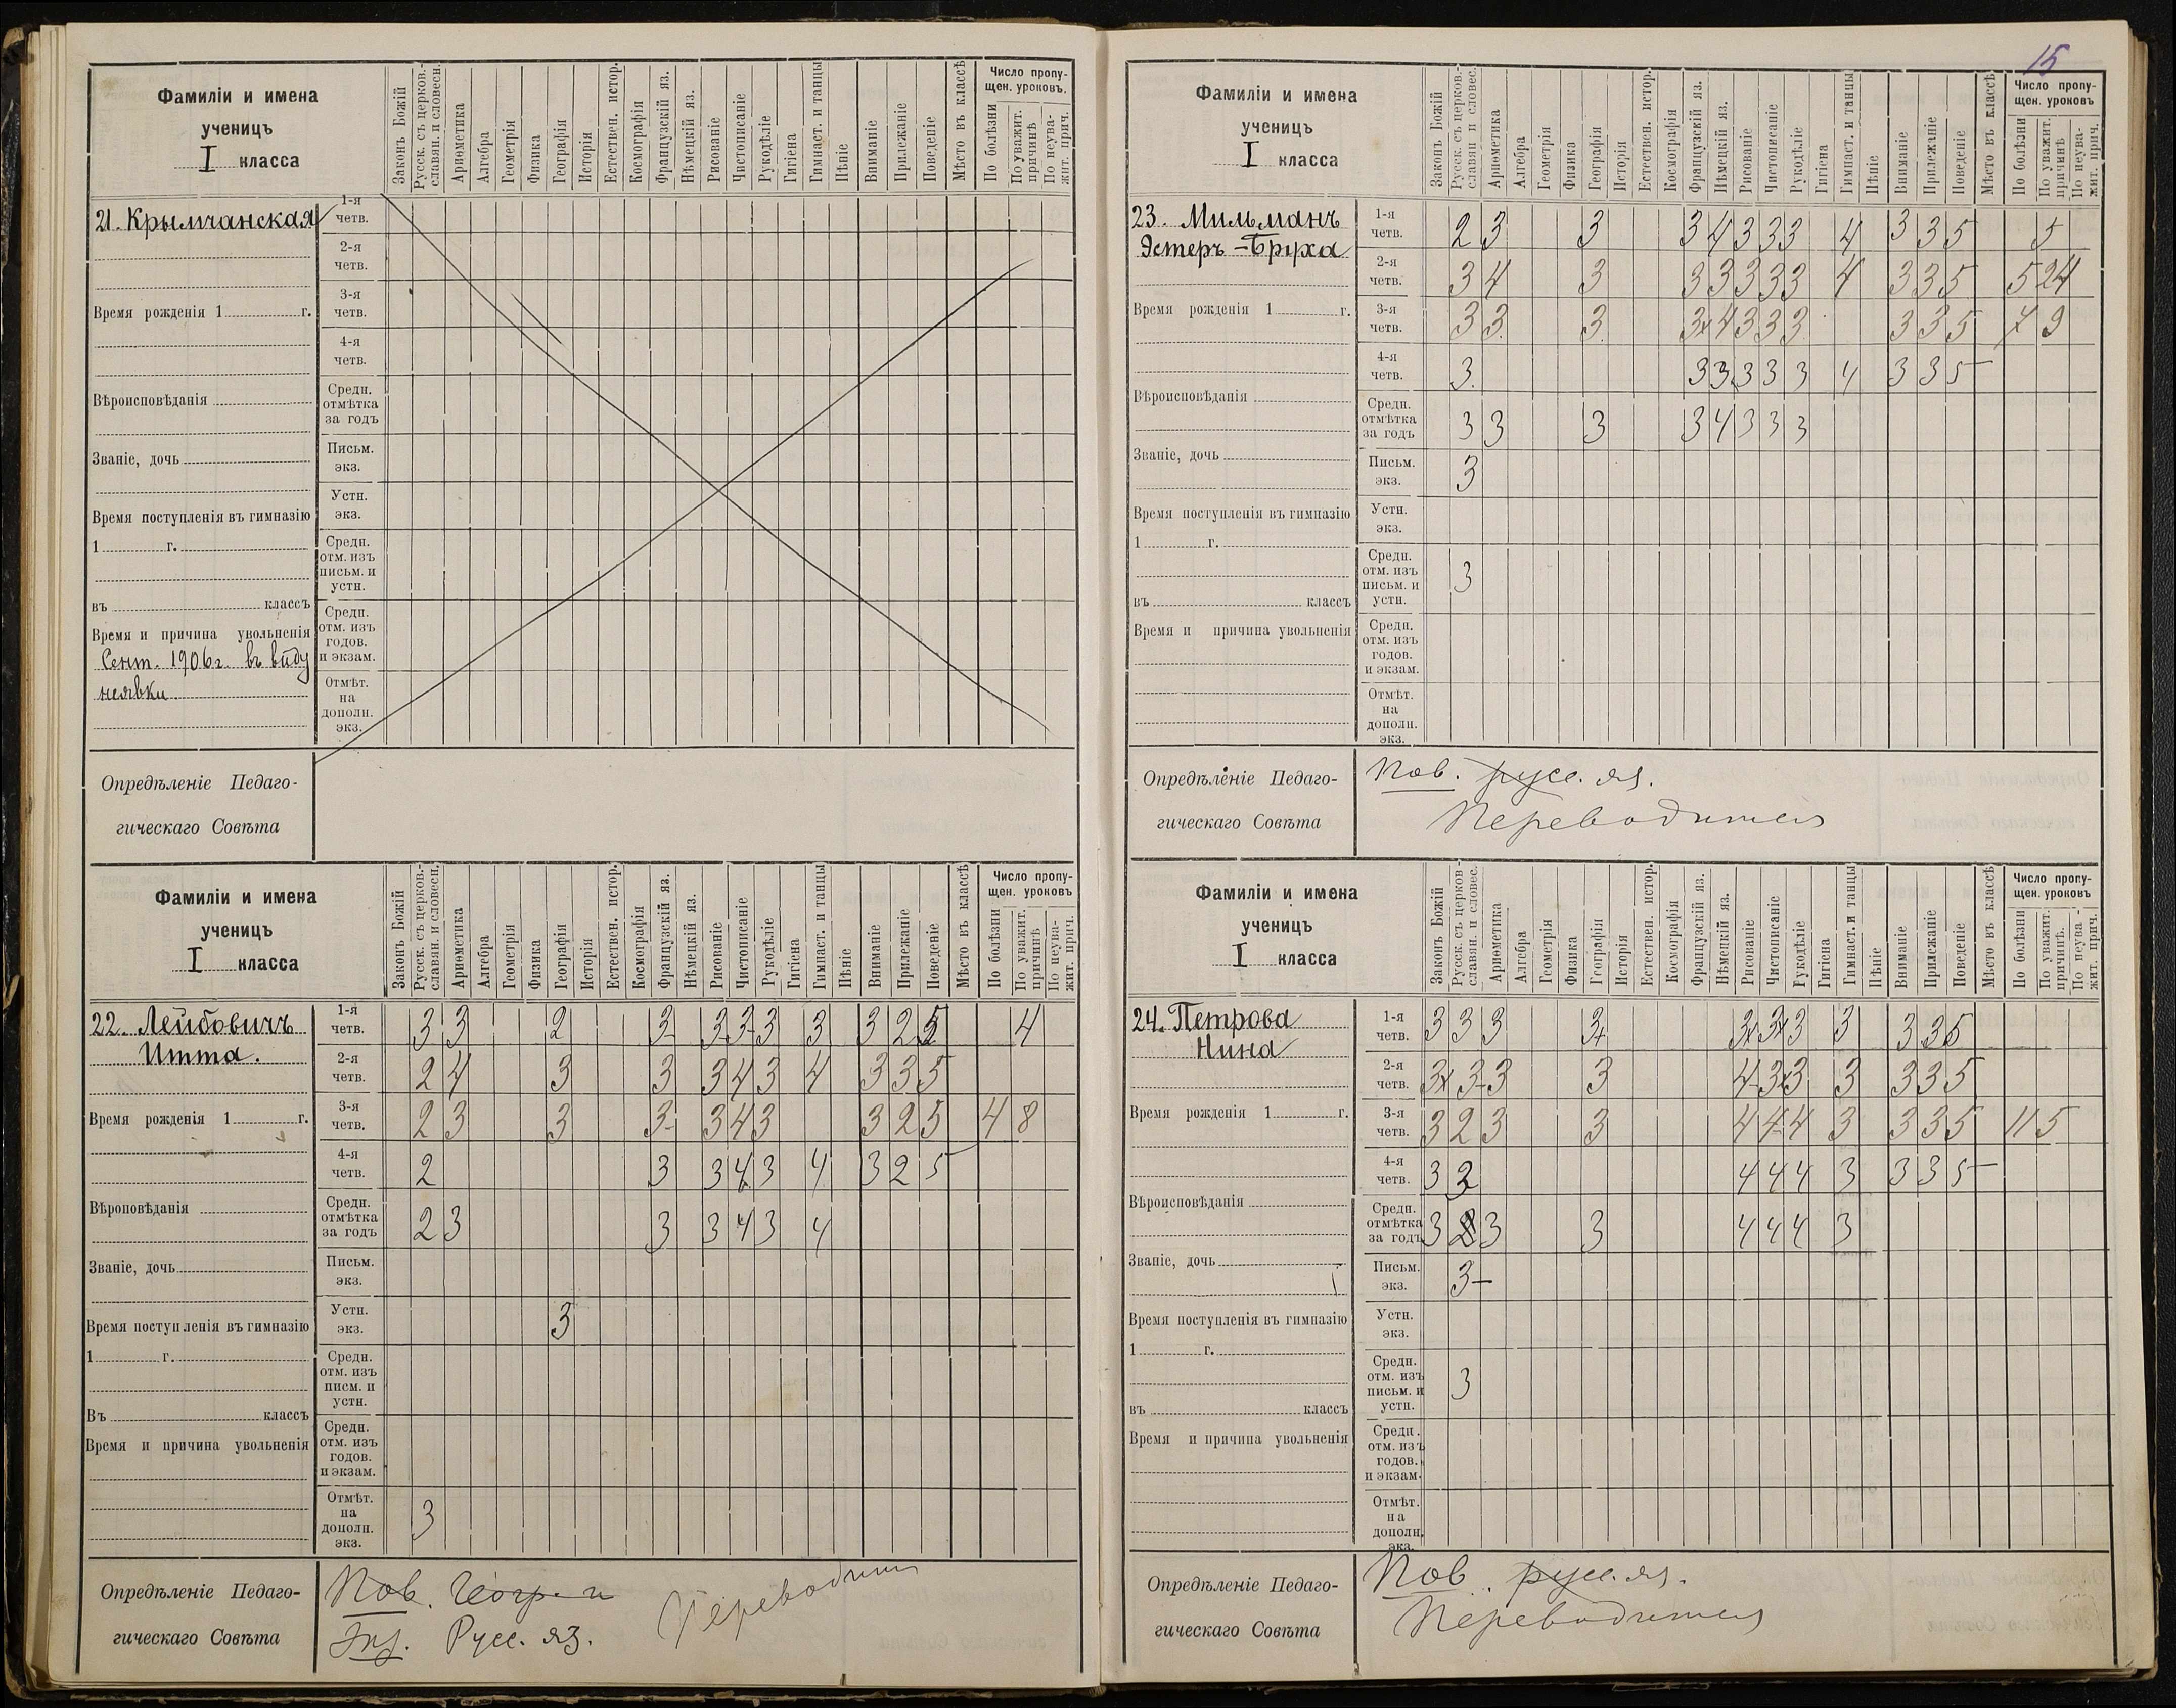 15
Фамиліи и имена
ученицъ
I класса
Законъ Божій
Русск. съ церков.-
славян. и словесн.
Ариѳметика
Алгебра
Геометрія
Физика
Географія
Исторія
Естествен. истор.
Космографія
Французскій яз.
Нѣмецкій яз.
Рисованіе
Чистописаніе
Рукодѣліе
Гигіена
Гимнаст. и танцы
Пѣніе
Вниманіе
Прилежаніе
Поведеніе
Мѣсто въ классѣ
Число пропу-
щен. уроковъ.
По болѣзни
По уважит.
причинѣ
По неува-
жит. прич.
21. Крымчанская
Время рожденія 1 г.
Вѣроисповѣданія
Званіе, дочь
Время поступленія въ гимназію
1 г.
въ классъ
Время и причина увольненія
Сент. 1906 г. въ виду
неявки
1-я
четв.
2-я
четв.
3-я
четв.
4-я
четв.
Средн.
отмѣтка
за годъ
Письм.
экз.
Устн.
экз.
Средн.
отм. изъ
письм. и
устн.
Средн.
отм. изъ
годов.
и экзам.
Отмѣт.
на
дополн.
экз.
Опредѣленіе Педаго-
гическаго Совѣта
Фамиліи и имена
ученицъ
I класса
Законъ Божій
Русск. съ церков.-
славян. и словесн.
Ариѳметика
Алгебра
Геометрія
Физика
Географія
Исторія
Естествен. истор.
Космографія
Французскій яз.
Нѣмецкій яз.
Рисованіе
Чистописаніе
Рукодѣліе
Гигіена
Гимнаст. и танцы
Пѣніе
Вниманіе
Прилежаніе
Поведеніе
Мѣсто въ классѣ
Число пропу-
щен. уроковъ
По болѣзни
По уважит.
причинѣ
По неува-
жит. прич.
22. Лейбовичъ
Итта.
Время рожденія 1 г.
Вѣроповѣданія
Званіе, дочь
Время поступленія въ гимназію
1 г.
Въ классъ
Время и причина увольненія
1-я
четв. 3 3 2 3- 3 3- 3 3 3 2 5 4
2-я
четв. 2 4 3 3 3 4 3 4 3 3 5
3-я
четв. 2 3 3 3- 3 4 3 3 2 5 4 8
4-я
четв. 2 3 3 4 3 4 3 2 5
Средн.
отмѣтка
за годъ 2 3 3 3 4 3 4
Письм.
экз.
Устн.
экз. 3
Средн.
отм. изъ
писм. и
устн.
Средн.
отм. изъ
годов.
и экзам.
Отмѣт.
на
дополн.
экз. 3
Опредѣленіе Педаго-
гическаго Совѣта
Пов. Геогр. и
Экз. Русс. яз.
Фамиліи и имена
ученицъ
I класса
Законъ Божій
Русск. съ церков.-
славян и словес.
Ариѳметика
Алгебра
Геометрія
Физика
Географія
Исторія
Естествен. истор.
Космографія
Французскій яз.
Нѣмецкій яз.
Рисованіе
Чистописаніе
Рукодѣліе
Гигіена
Гимнаст. и танцы
Пѣніе
Вниманіе
Прилежаніе
Поведеніе
Мѣсто въ классѣ
Число пропу-
щен. уроковъ
По болѣзни
По уважит.
причинѣ
По неува-
жит. прич.
23. Мильманъ
Эстеръ-Бруха
Время рожденія 1 г.
Вѣроисповѣданія
Званіе, дочь
Время поступленія въ гимназію
1 г.
въ классъ
Время и причина увольненія
1-я
четв. 2 3 3 3 4 3 3 3 4 3 3 5 5
2-я
четв. 3 4 3 3 3 3 3 3 4 3 3 5 5 24
3-я
четв. 3 3 3 3+ 4 3 3 3 3 3 5 7 9
4-я
четв. 3 3 3 3 3 3 4 3 3 5
Средн.
отмѣтка
за годъ 3 3 3 3 4 3 3 3
Письм.
экз. 3
Устн.
экз.
Средн.
отм. изъ
письм. и
устн. 3
Средн.
отм. изъ
годов.
и экзам.
Отмѣт.
на
дополн.
экз.
Опредѣленіе Педаго-
гическаго Совѣта
Пов. русс. яз.
Переводится
Фамиліи и имена
ученицъ
I класса
Законъ Божій
Русск. съ церков-
славян. и словес.
Ариѳметика
Алгебра
Геометрія
Физика
Географія
Исторія
Естествен. истор.
Космографія
Французскій яз.
Нѣмецкій яз.
Рисованіе
Чистописаніе
Рукодѣліе
Гигіена
Гимнаст. и танцы
Пѣніе
Вниманіе
Прилежаніе
Поведеніе
Мѣсто въ классѣ
Число пропу-
щен. уроковъ
По болѣзни
По уважит.
причинѣ.
По неува-
жит. прич.
24. Петрова
Нина
Время рожденія 1 г.
Вѣроисповѣданія
Званіе, дочь
Время поступленія въ гимназію
1 г.
въ классъ
Время и причина увольненія
1-я
четв. 3 3 3 3+ 3+ 3+ 3 3 3 3 5
2-я
четв. 3+ 3- 3 3 4- 3+ 3 3 3 3 5
3-я
четв. 3 2 3 3 4 4- 4 3 3 3 5 11 5
4-я
четв. 3 3 4 4 4 3 3 3 5
Средн.
отмѣтка
за годъ 3 3 3 4 4 4 3
Письм.
экз. 3-
Устн.
экз.
Средн.
отм. изъ
письм. и
устн. 3
Средн.
отм. изъ
годов.
и экзам.
Отмѣт.
на
дополн.
экз.
Опредѣленіе Педаго-
гическаго Совѣта
Пов. русс. яз.
Переводится